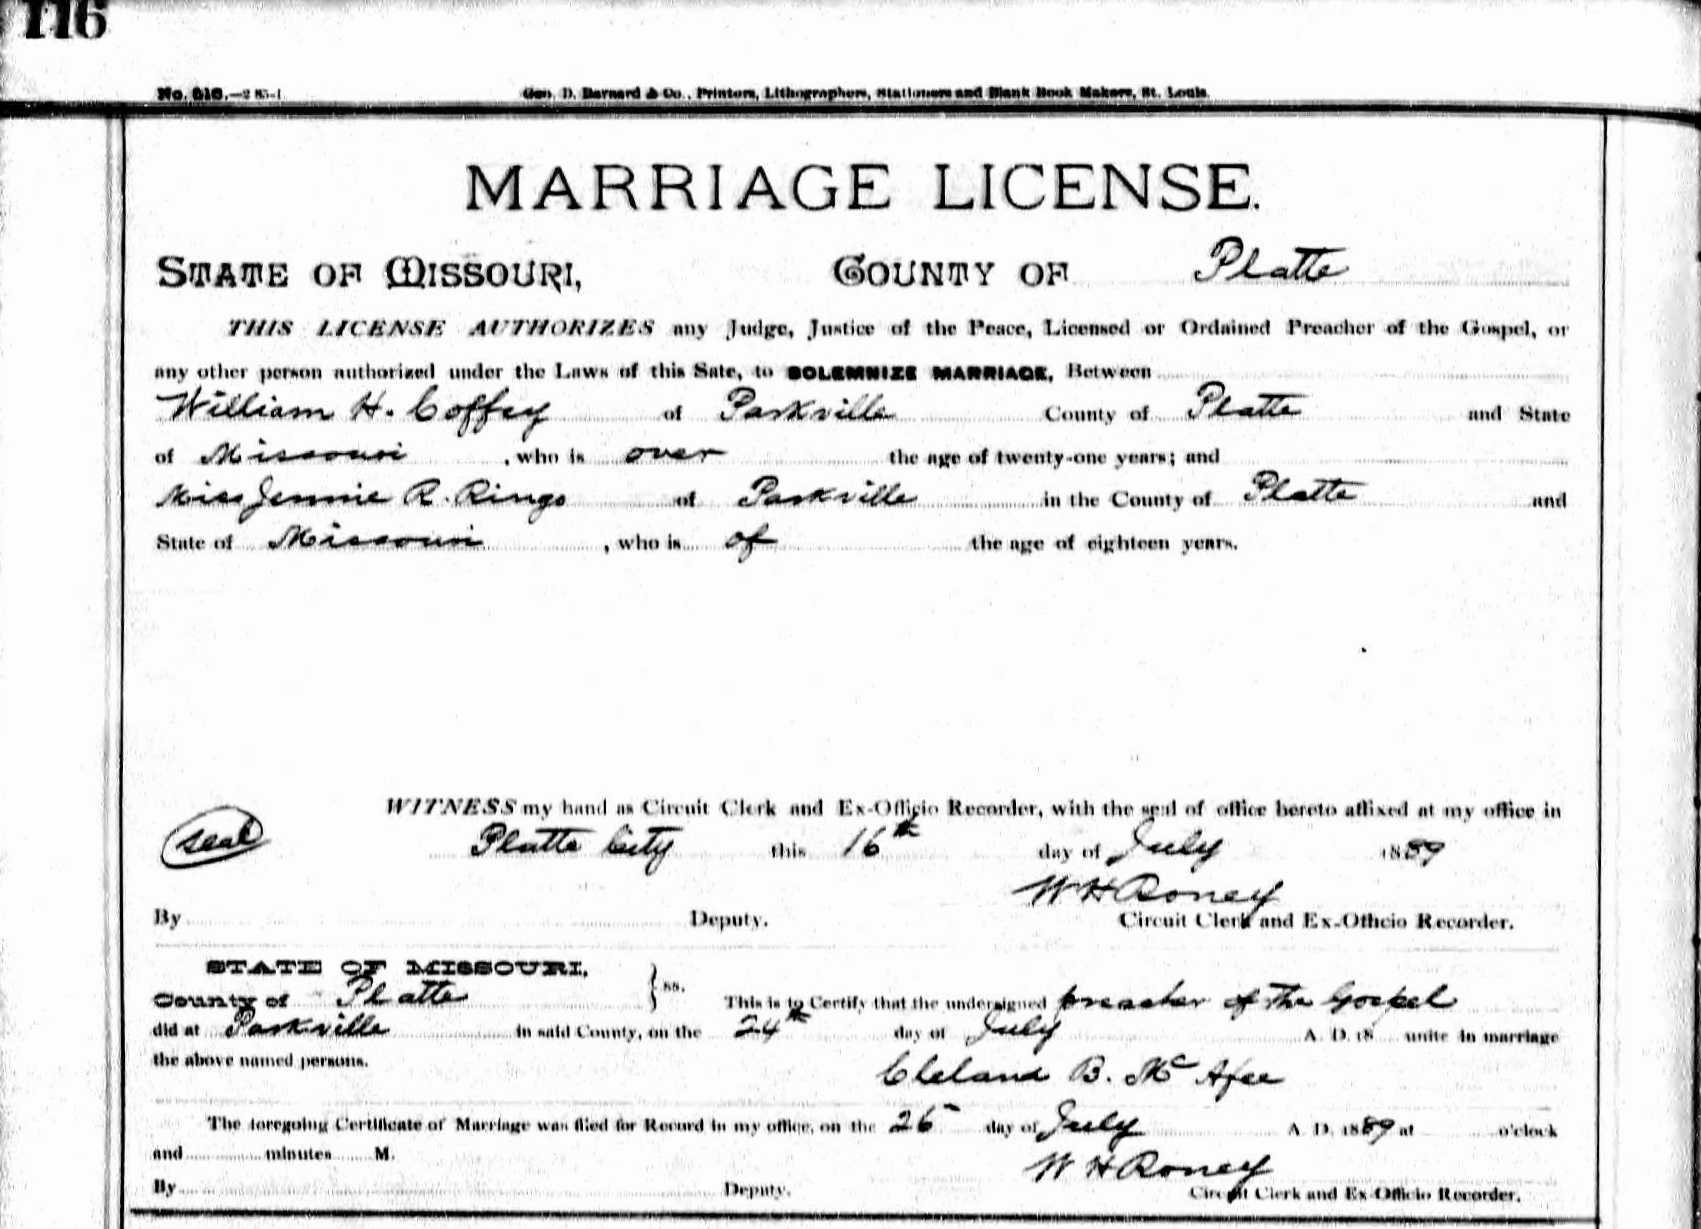 116
No. 616.—2 85-1 Geo. D. Barnard & Co., Printers, Lithographers, Stationers and Blank Book Makers, St. Louis.
MARRIAGE LICENSE.
STATE OF MISSOURI, COUNTY OF Platte
THIS LICENSE AUTHORIZES any Judge, Justice of the Peace, Licensed or Ordained Preacher of the Gospel, or
any other person authorized under the Laws of this Sate, to SOLEMNIZE MARRIAGE, Between
William H. Coffey of Parkville County of Platte and State
of Missouri, who is over the age of twenty-one years; and
Miss Jennie R. Ringo of Parkville in the County of Platte and
State of Missouri, who is of the age of eighteen years.
WITNESS my hand as Circuit Clerk and Ex-Officio Recorder, with the seal of office hereto affixed at my office in
seal Platte City this 16th day of July 1889
W H Roney
By Deputy. Circuit Clerk and Ex-Officio Recorder.
STATE OF MISSOURI,
County of Platte } ss. This is to Certify that the undersigned preacher of the Gospel
did at Parkville in said County, on the 24th day of July A. D. 18 unite in marriage
the above named persons. Cleland B. McAfee
The foregoing Certificate of Marriage was filed for Record in my office, on the 26 day of July A. D. 1889 at o'clock
and minutes M. W H Roney
By Deputy. Circuit Clerk and Ex-Officio Recorder.